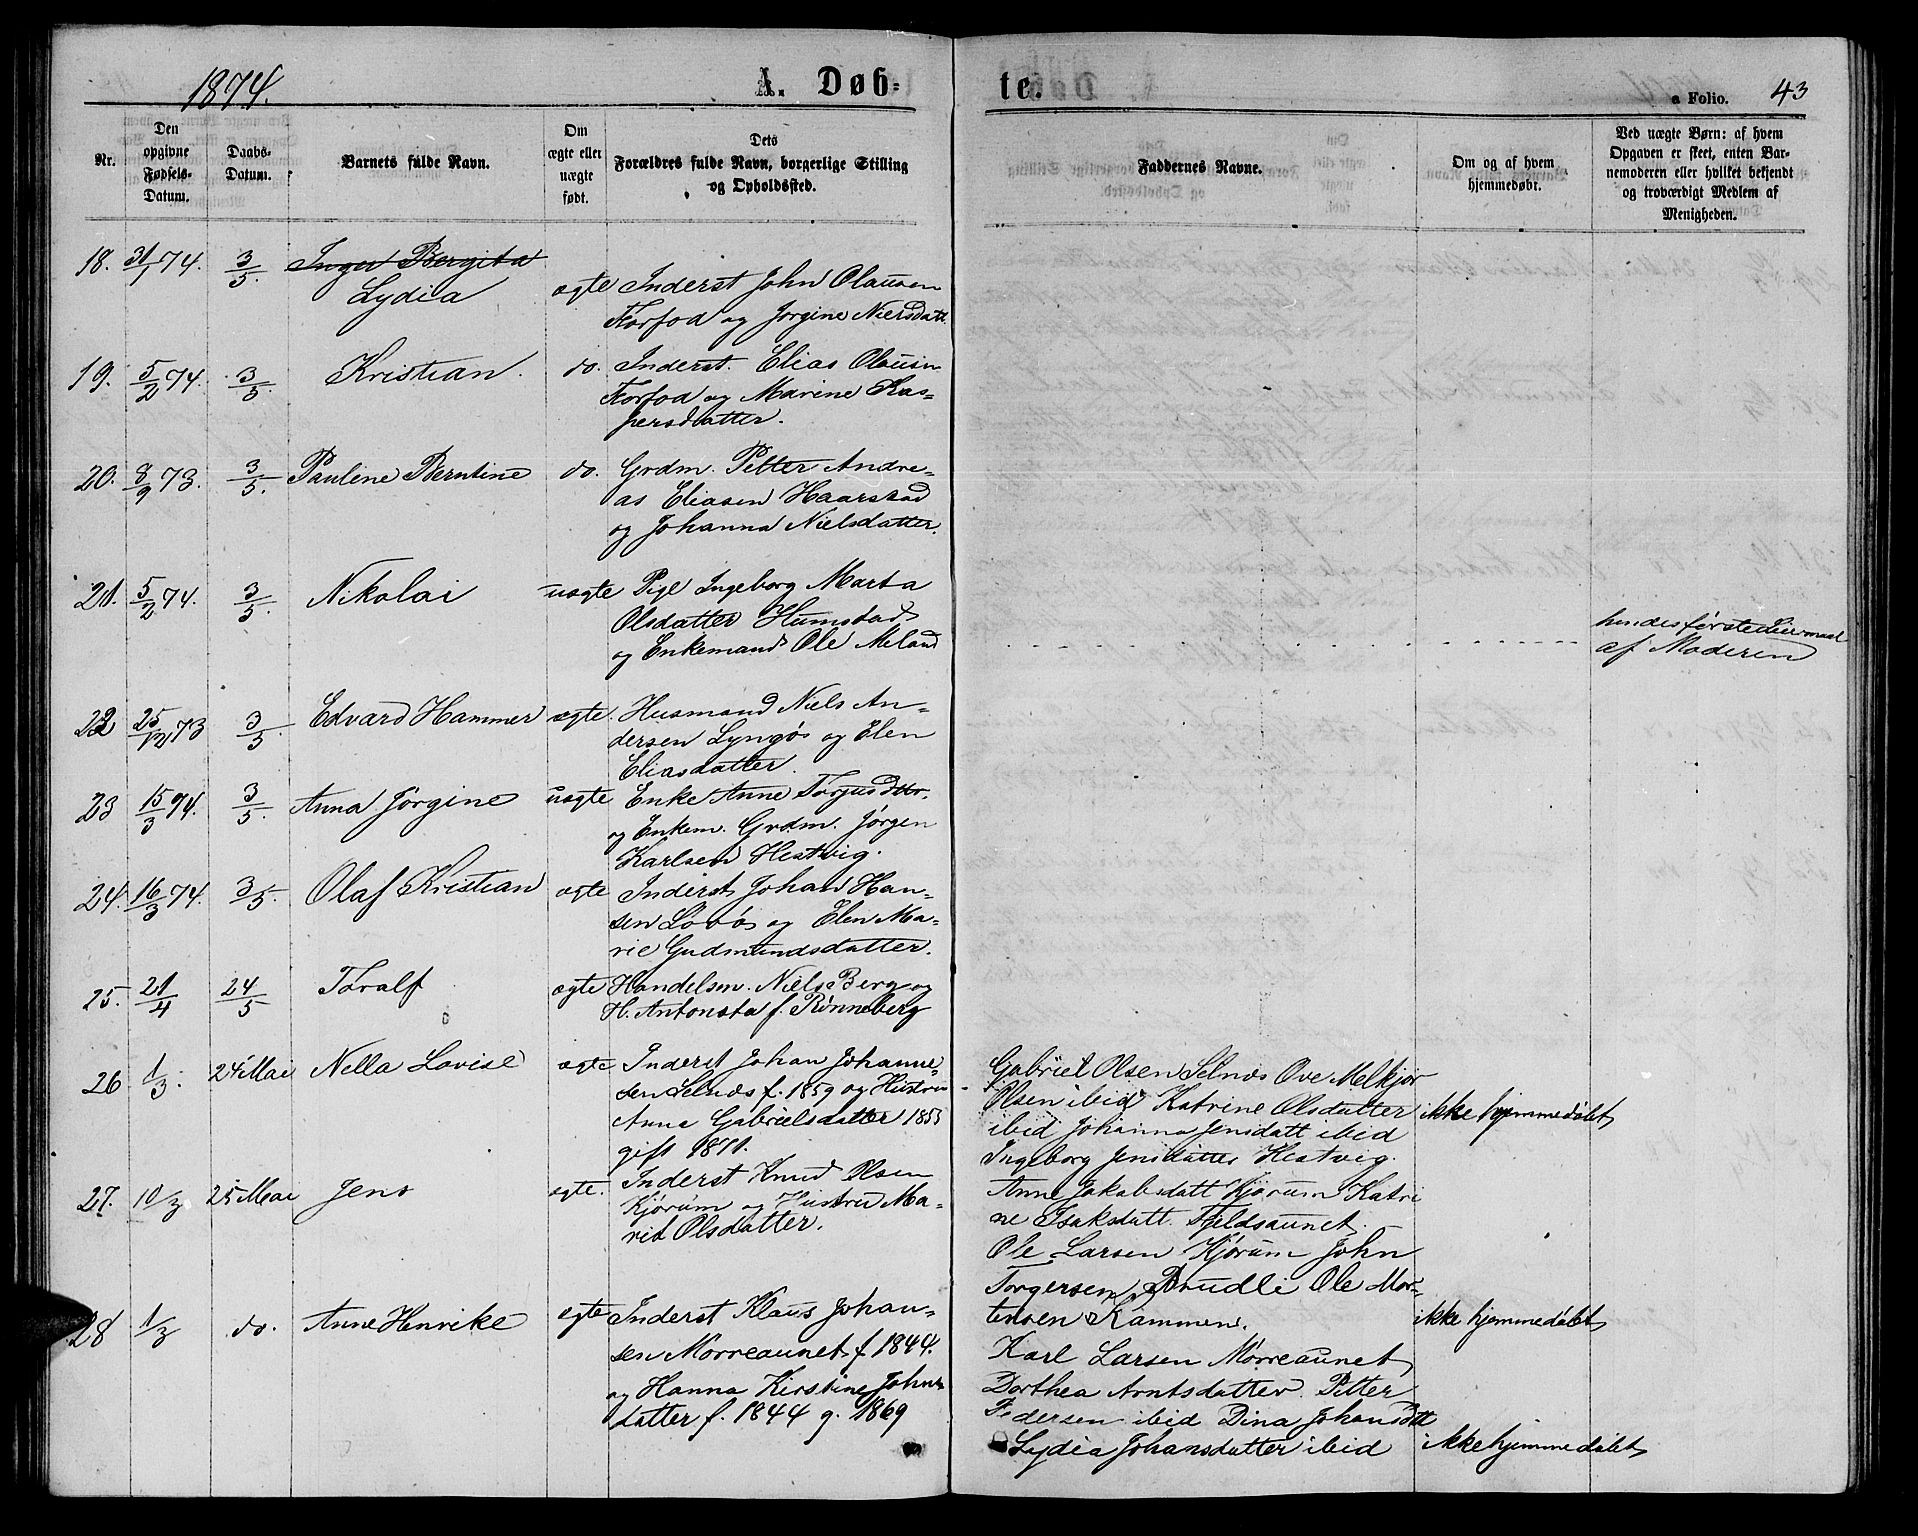 1874.
A. Døb-
te.
a Folio. 43
Nr.
Den opgivne Fødsels-Datum.
Daabs-Datum.
Barnets fulde Navn.
Om ægte eller uægte født.
Dets Forældres fulde Navn, borgerlige Stilling og Opholdssted.
Faddernes Navne.
Om og af hvem hjemmedøbt.
Ved uægte Børn: af hvem Opgaven er skeet, enten Barnemoderen eller hvilket bekjendt og troværdigt Medlem af Menigheden.
18. 31/1 74. 3/5. Inger Bergita
Lydia ægte Inderst John Olausen
Forfod og Jørgine Nielsdatt.
19. 5/2 74. 3/5. Kristian. do. Inderst. Elias Olausen
Forfod og Marine Kas-
persdatter.
20. 8/9 73. 3/5. Pauline Berntine do. Grdm. Petter Andre-
as Eliasen Haarstad
og Johanna Nielsdatter.
21. 5/2 74. 3/5. Nikolai uægte Pige Ingeborg Marta
Olsdatter Humstad
og Enkemand Ole Meland
hendes første Leiermaal
af Moderen
22 25/12 73 3/5. Edvard Hammer ægte. Husmand Niels An-
dersen Lyngøs og Elen
Eliasdatter.
23 15/3 74. 3/5. Anna Jørgine uægte Enke Anne Torjusdttr.
og Enkem. Grdm. Jørgen
Karlsen Hestvig.
24. 16/3 74. 3/5. Olaf Kristian ægte Inderst Johan Han-
sen og Elen Ma-
rie Gudmundsdatter.
25. 21/4 24/5 Toralf ægte Handelsm. Niels Berg og
H. Antoneta f. Rønneberg
26 1/3. 24 Mai Nella Lovise ægte Inderst Johan Johanne-
sen Selnæs f. 1859 og Hustru
Anna Gabrielsdatter 1853
gift 1871.
Gabriel Olsen Selnæs Ove Melkjor
Olsen ibid Katrine Olsdatter ikke hjemmedøbt
ibid Johanna Jensdatt ibid
Ingeborg Jensdatter Hestvig.
27. 10/3 25 Mai Jens ægte. Inderst Knud Olsen
Kjørum og Hustru Ma-
rit Olsdatter.
Anne Jakobsdatt Kjørum Katri
ne Isaksdatt. Fjeldsaunet.
Ole Larsen Kjørum John
Torgersen Brudli Ole Mor-
tensen Kammen. ikke hjemmedøbt
28 1/3 do. Anne Henrike ægte Inderst Klaus Johan-
sen Morreaunet f 1844.
og Hanna Kirstine Johns
datter f. 1844 g. 1869
Karl Larsen Morreaunet
Dorthea Arntsdatter Petter
Pedersen ibid Dina Johansdtt
Lydia Johansdatter ibid ikke hjemmedøbt